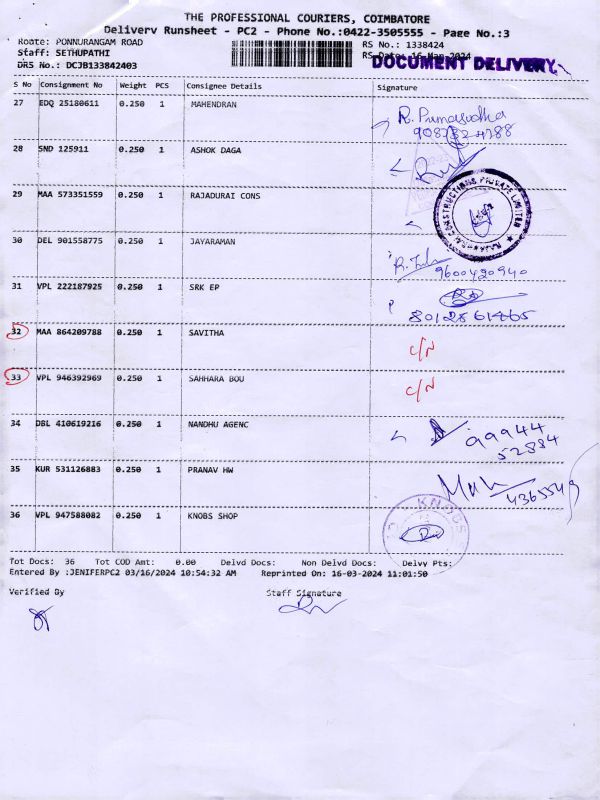 THE PROFESSIONAL COURIERS, COIMBATORE
Delivery Runsheet - PC2 - Phone No.:0422-3505555 - Page No.:3
Route: PONNURANGAM ROAD
RS No.: 1338424
Staff: SETHUPATHI
RS Date: 16-Mar-2024
DRS No.: DCJB133842403
DOCUMENT DELIVERY
S No Consignment No Weight PCS Consignee Details Signature
27 EDQ 25180611 0.250 1 MAHENDRAN
28 SND 125911 0.250 1 ASHOK DAGA
29 MAA 573351559 0.250 1 RAJADURAI CONS
CONSTRUCTIONS PRIVATE LIMITED
30 DEL 901558775 0.250 1 JAYARAMAN
9600420940
31 VPL 222187925 0.250 1 SRK EP
32 MAA 864209788 0.250 1 SAVITHA C/N
33 VPL 946392969 0.250 1 SAHHARA BOU C/N
34 DBL 410619216 0.250 1 NANDHU AGENC 99944
52884
35 KUR 531126883 0.250 1 PRANAV HW
36 VPL 947588082 0.250 1 KNOBS SHOP
KNOBS
Tot Docs: 36 Tot COD Amt: 0.00 Delvd Docs: Non Delvd Docs: Delvy Pts:
Entered By :JENIFERPC2 03/16/2024 10:54:32 AM Reprinted On: 16-03-2024 11:01:50
Verified By Staff Signature